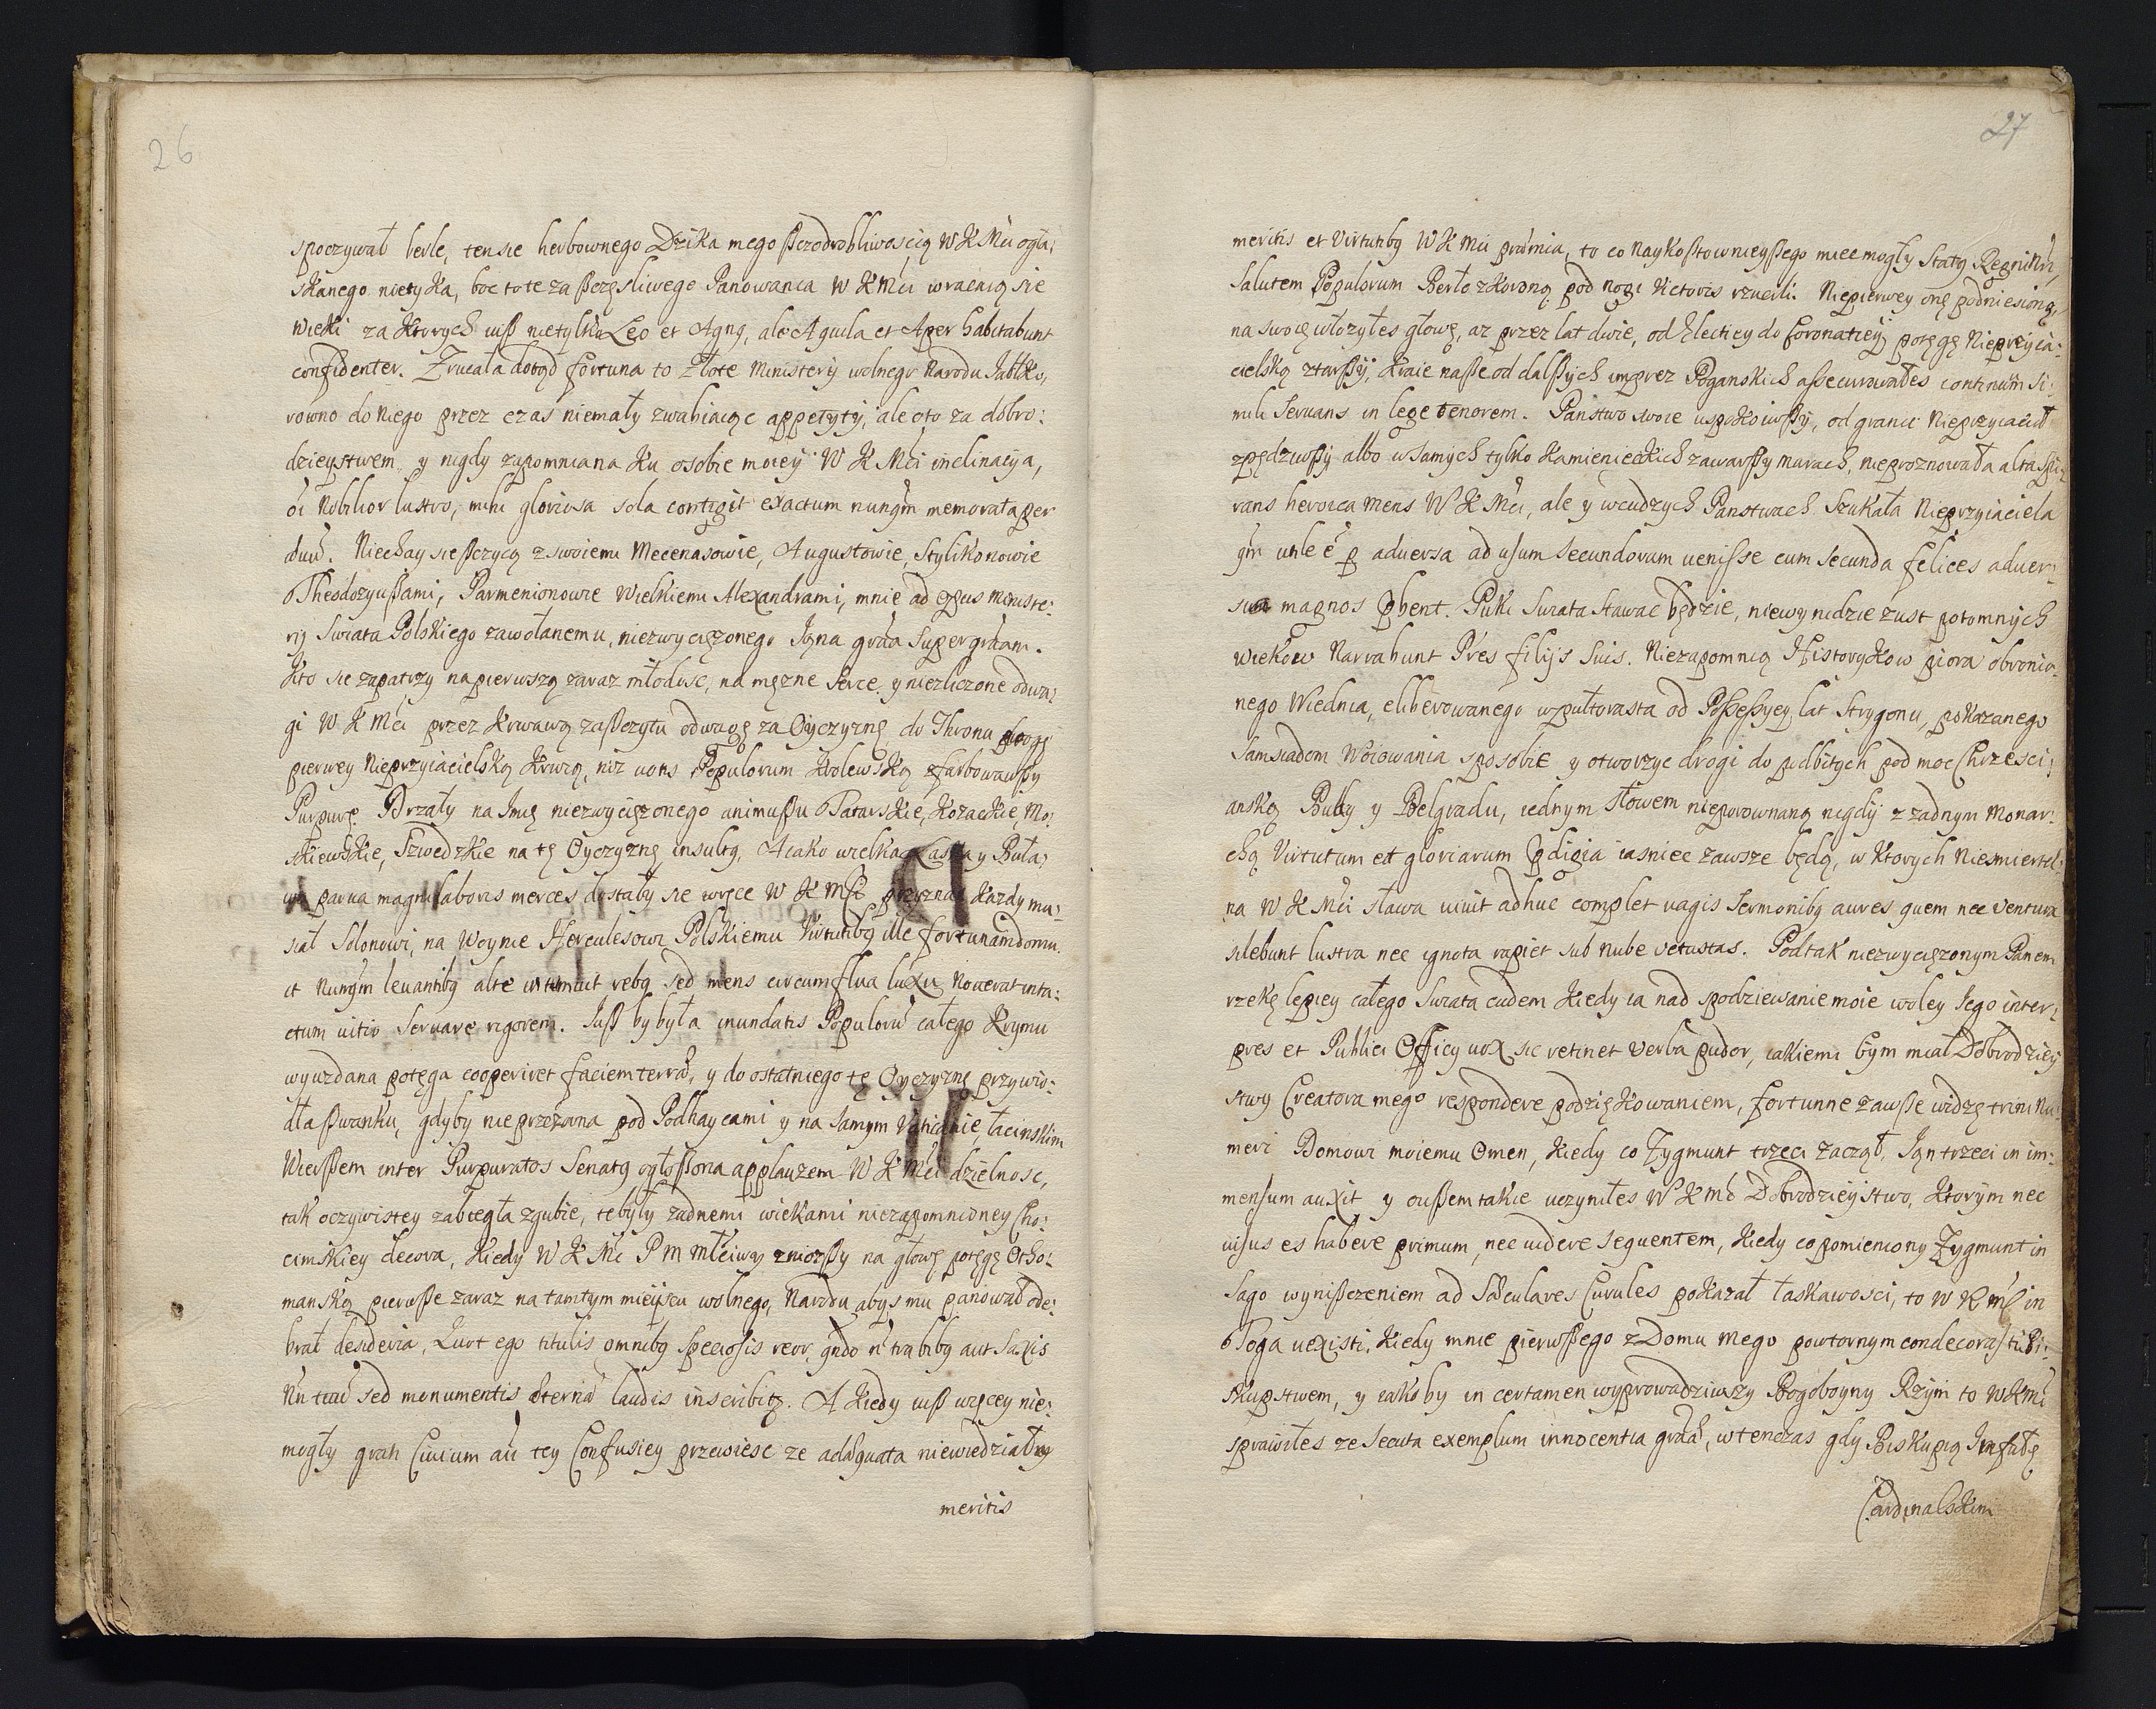 26
spoczywał berle, tensie herbownego Dzika mego sczodrobliwoscią W K Mci ogła:
skanego nietyka, boc to te za sczęsliwego Panowania W K Mci wracaią sie
wieki za ktorych iuß nietylko Leo et Agnq, ale Aquila et Aper habitabunt
confidenter. Zrucała dotąd fortuna to złote Ministerij wolnego Narodu Jabłko,
rowno do niego przez czas niemały zwabiaiąc appetyty, ale oto za dobro:
dzieystwem y nigdy zapomniana ku osobie moiey W K Mci inclinacija,
Nobilior lustro, mihi gloriosa sola contigit exactum nunqm memorata per
. Niechay sie sczycą z swoiemi Mecenasowie, Augustowie, Stylikonowie
Theodozyußami, Parmenionowie Wielkiemi Alexandrami, mnie ad opus Ministe:
rij Swiata Polskiego zawołanemu, niezwyciężonego Jana grãa super grãam.
Kto sie zapatrzy na pierwszą zaraz młodosc, na męzne serce y niezliczone odwa:
gi W K Mci przez krwawą zaßczytu odwagę za Oyczyznę do Thronu drogę
pierwey Nieprzyiacielską krwią, niz uons Populorum krolewską zfarbowawßy
Purpurę. Drzały na Imię niezwyciężonego animußu Tatarskie, Kozackie, Mo:
skiewskie, Szwedzkie na tę Oyczyznę insultq, A iako wielka Laska y Buła:
wa parua magni laboris merces dostały sie wręce W K Mci przyznać każdy mu:
siał Solonowi, na Woynie Herculesowi Polskiemu Virtutibq ille fortunam domu.
it Nunqm leuantibq alte intumuit rebq sed mens circumflua luxu Nouerat inta:
ctum uitio seruare rigorem. Juß by była inundatis Populorũ całego Krymu
wyuzdana potęga cooperiret faciem terrã, y do ostatniego tę Oyczyznę przywio:
dła ßwanku, gdyby nie przeẓ́rana pod Podhaycami y na samym Vaticanie, łacinskim
Wierßem inter Purpuratos Senatq ogłoßona applauzem W K Mci dzielnosc,
tak oczywistey zabiegła zgubie, te były zadnemi wiekami niezapomnioney Cho:
cimskiey decora, kiedy W K Mc P M Młciwy zniozßy na głowę potęgę Otho:
manską pierwße zaraz na tamtym mieyscu wolnego, Narodu abys mu panował ode:
brał desideria, Lurt ego titulis omnibq speciosis reor, qndo ñ trabibq aut saxis
Nñ sed monumentis æternã laudis inscribitq. A kiedy iuß więcey nie:
mogły grah Ciuium aũ tey Confusiey przewiesc ze adæquata niewiedziałby
meritis

27
meritis et Virtutibq W K Mci præmia, to co naykoßtownieyßego miec mogły Statq Regnũ
Salutem Populorum Berło z koroną pod nogi Victoris rzucili. Niepierwey onę podniesioną,
na swoię włożyłes głowę, aż przez lat dwie, od Electiey do Coronatiey potęgę Nieprzyia:
cielską ztarßy, kraie naße od dalßych imprez Poganskich assecurowałes continuũm si:
mili seruans in lege tenorem. Panstwo swoie uspokoiwßy, od granic Nieprzyiacioł
zpędziwßy albo w samych tylko kamienieckich zawarßy murach, nieproznowała alta spi:
rans heroica mens W K Mci, ale y w cudzych Panstwach szukała Nieprzyiaciela
qm utile ẽ p aduersa ad usum secundorum uenisse cum secunda felices aduer:
sa magnos pbent. Puki swiata stawac będzie, niewynidzie z ust potomnych
wiekow Narrabunt Pres filijs suis. Niezapomnią Historykow piora obronio:
nego Wiednia, eliberowanego w pułtorasta od Possessyey lat Strygonu, pokazanego
samsiadom woiowania sposobie y otworzyc drogi do podbitych pod moc Chrzesci:
anską Budy y Belgradu, iednym słowem nieporownaną nigdy z zadnym Monar:
chą Virtutum et gloriarum pdigia iasniec zawsze będą, w ktorych Niesmiertel:
na W K Mci sława uiuit adhuc complet uagis sermonibq aures quem nec ventura
silebunt lustra nec ignota rapiet sub nube vetustas. Podtak niezwyciężonym Panem
rzekę lepiey całego swiata cudem kiedy ia nad spodziewanie moie woley Jego inter:
pres et Publici Officij uox sic retinet verba pudor, iakiemi bym miał Dobrodziey
stwy Creatora mego respondere podziękowaniem, fortunne zawße widzę trini Nu:
meri Domowi moiemu Omen, kiedy co Zygmunt trzeci zaczął, Jan trzeci in im:
mensum auxit y owßem takie uczyniłes W K Mc Dobrodzieystwo, ktorym nec
uisus es habere primum, nec uidere sequentem, kiedy co pomieniony Zygmunt in
Sago wynißczeniem ad Sæculares Curules pokazał łaskawosci, to W K Mc in
Toga uexisti, kiedy mnie pierwßego z Domu mego powtornym condecorasti Bi:
skupstwem, y iakoby in certamen wyprowadziwszy Bogoboyny Rzym to W K Mc
sprawiłes ze secuta exemplum innocentia grãã, wtenczas gdy Biskupią Infułę
Cardinalskim